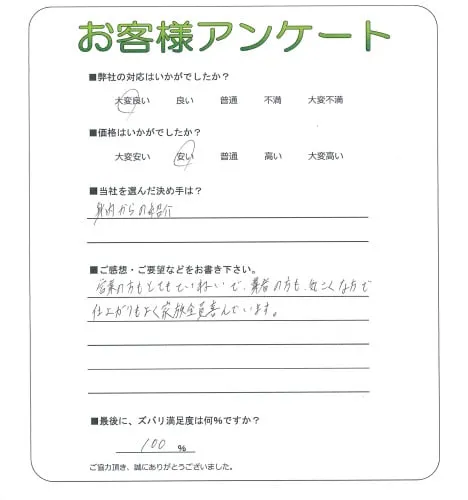 お客様アンケート
■弊社の対応はいかがでしたか?
大変良い 良い 普通 不満 大変不満
■価格はいかがでしたか?
大変安い 安い 普通 高い 大変高い
■当社を選んだ決め手は?
身内からの紹介
■ご感想・ご要望などをお書き下さい。
営業の方もとてもていねいで、業者の方も、気さくな方で
仕上がりもよく家族全員喜んでいます。
■最後に、ズバリ満足度は何%ですか?
100 %
ご協力頂き、誠にありがとうございました。